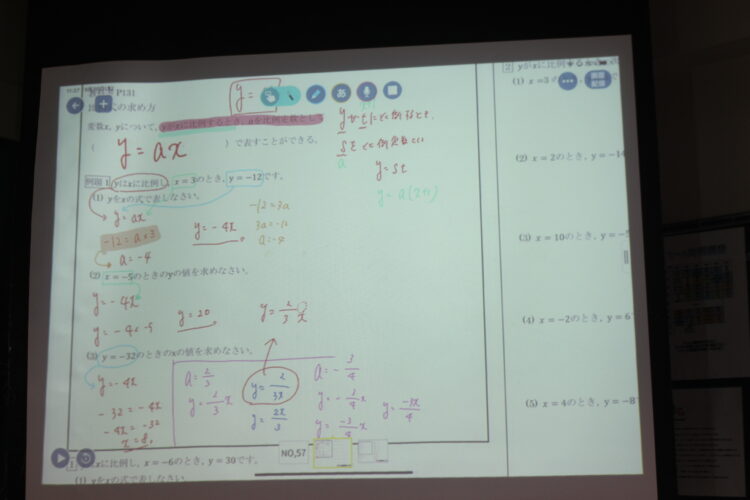 11:37
P131
式の求め方
y=
変数x, yについて, yがxに比例するとき, aを比例定数として
( y=ax )で表すことができる。
例題1 yはxに比例し, x=3のとき, y=-12です。
(1) yをxの式で表しなさい。
y=ax
-12=a×3
a=-4
y=-4x
-12=3a
3a=-12
a=-4
(2) x=-5のときのyの値を求めなさい。
y=-4x
y=20
y=2/3 x
(3) y=-32のときのxの値を求めなさい。
y=-4x
-32=-4x
-4x=-32
x=8
a=2/3
y=2/3 x
y=2/3x
y=2x/3
a=-3/4
y=-3/4 x
y=-3/4 x
y=-3x/4
1 xに比例し, x=-6のとき, y=30です。
(1) yをxの式で表しなさい。
y=st
a
あ
画面配信
NO,57
2 yがxに比例
(1) x=3の
(2) x=2のとき, y=-14
(3) x=10のとき, y=-5
(4) x=-2のとき, y=6
(5) x=4のとき, y=-8